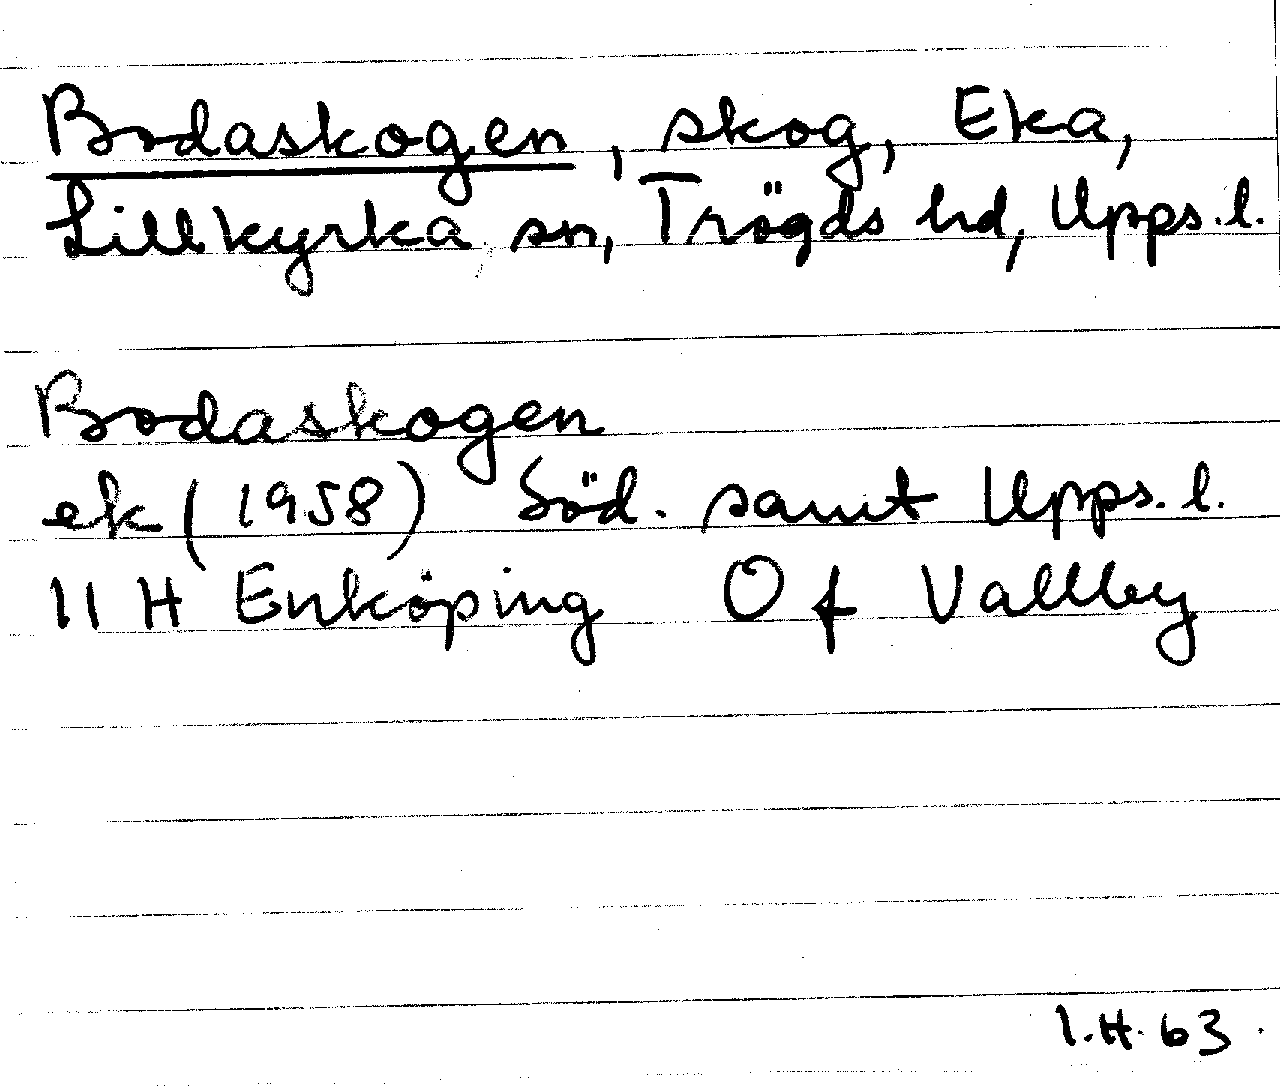 Bodaskogen, skog, Eka,
Lillkyrka sn, Trögds hd, Upps.l.
Bodaskogen
ek (1958) Söd. samt Upps. l.
11 H Enköping Of Vallby
I.H. 63.